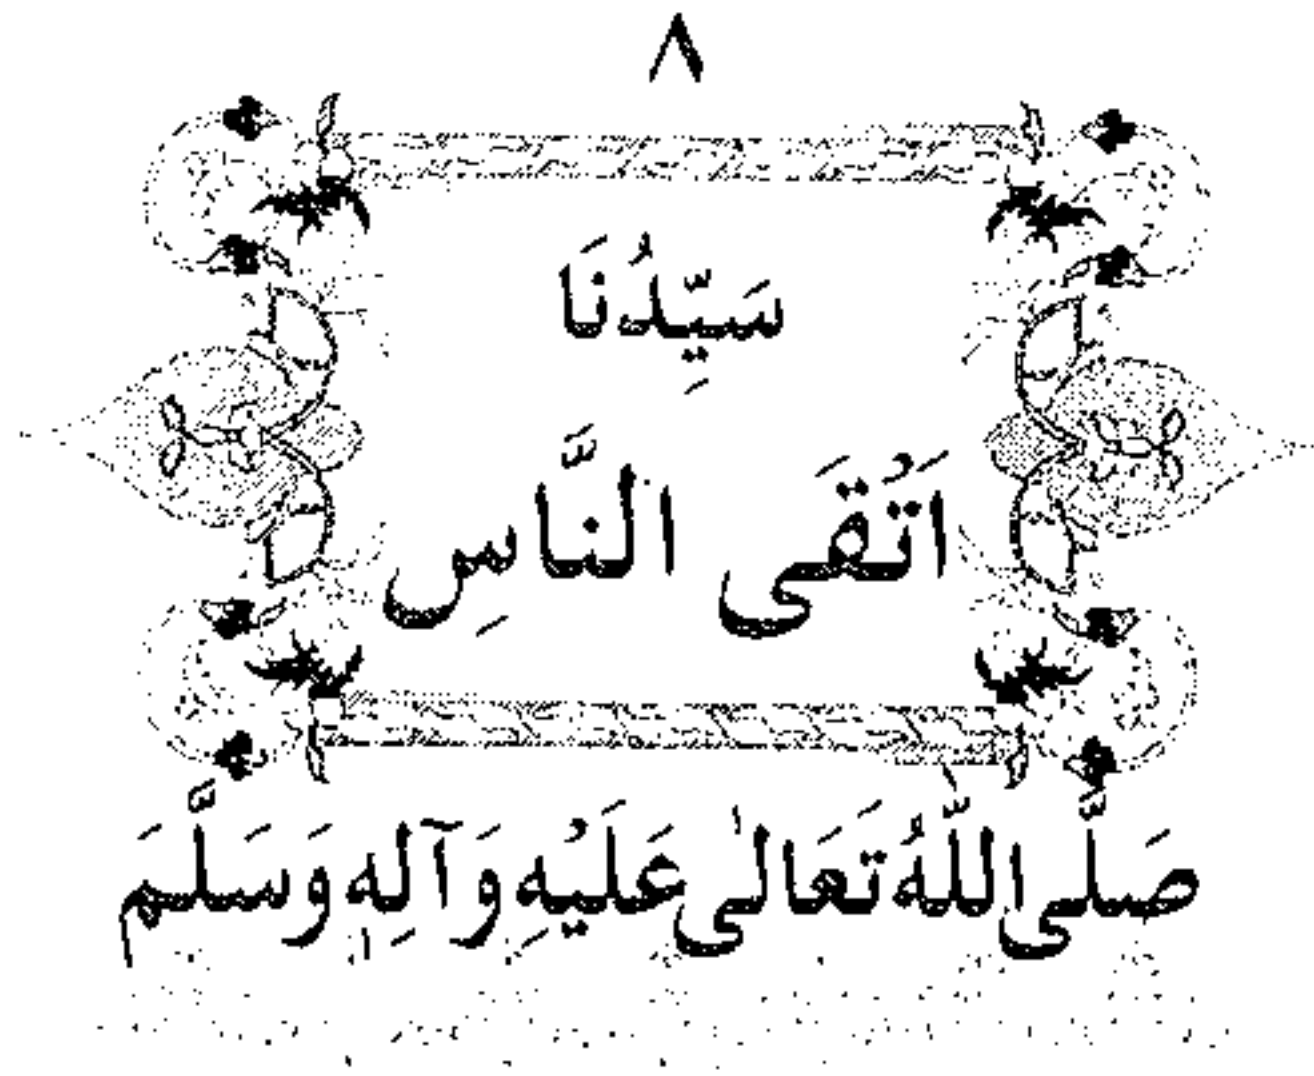 ٨
سَيِّدُنَا
اَتْقَى النَّاسِ
صَلَّى اللّٰهُ تَعَالٰى عَلَيْهِ وَآلِهٖ وَسَلَّمَ